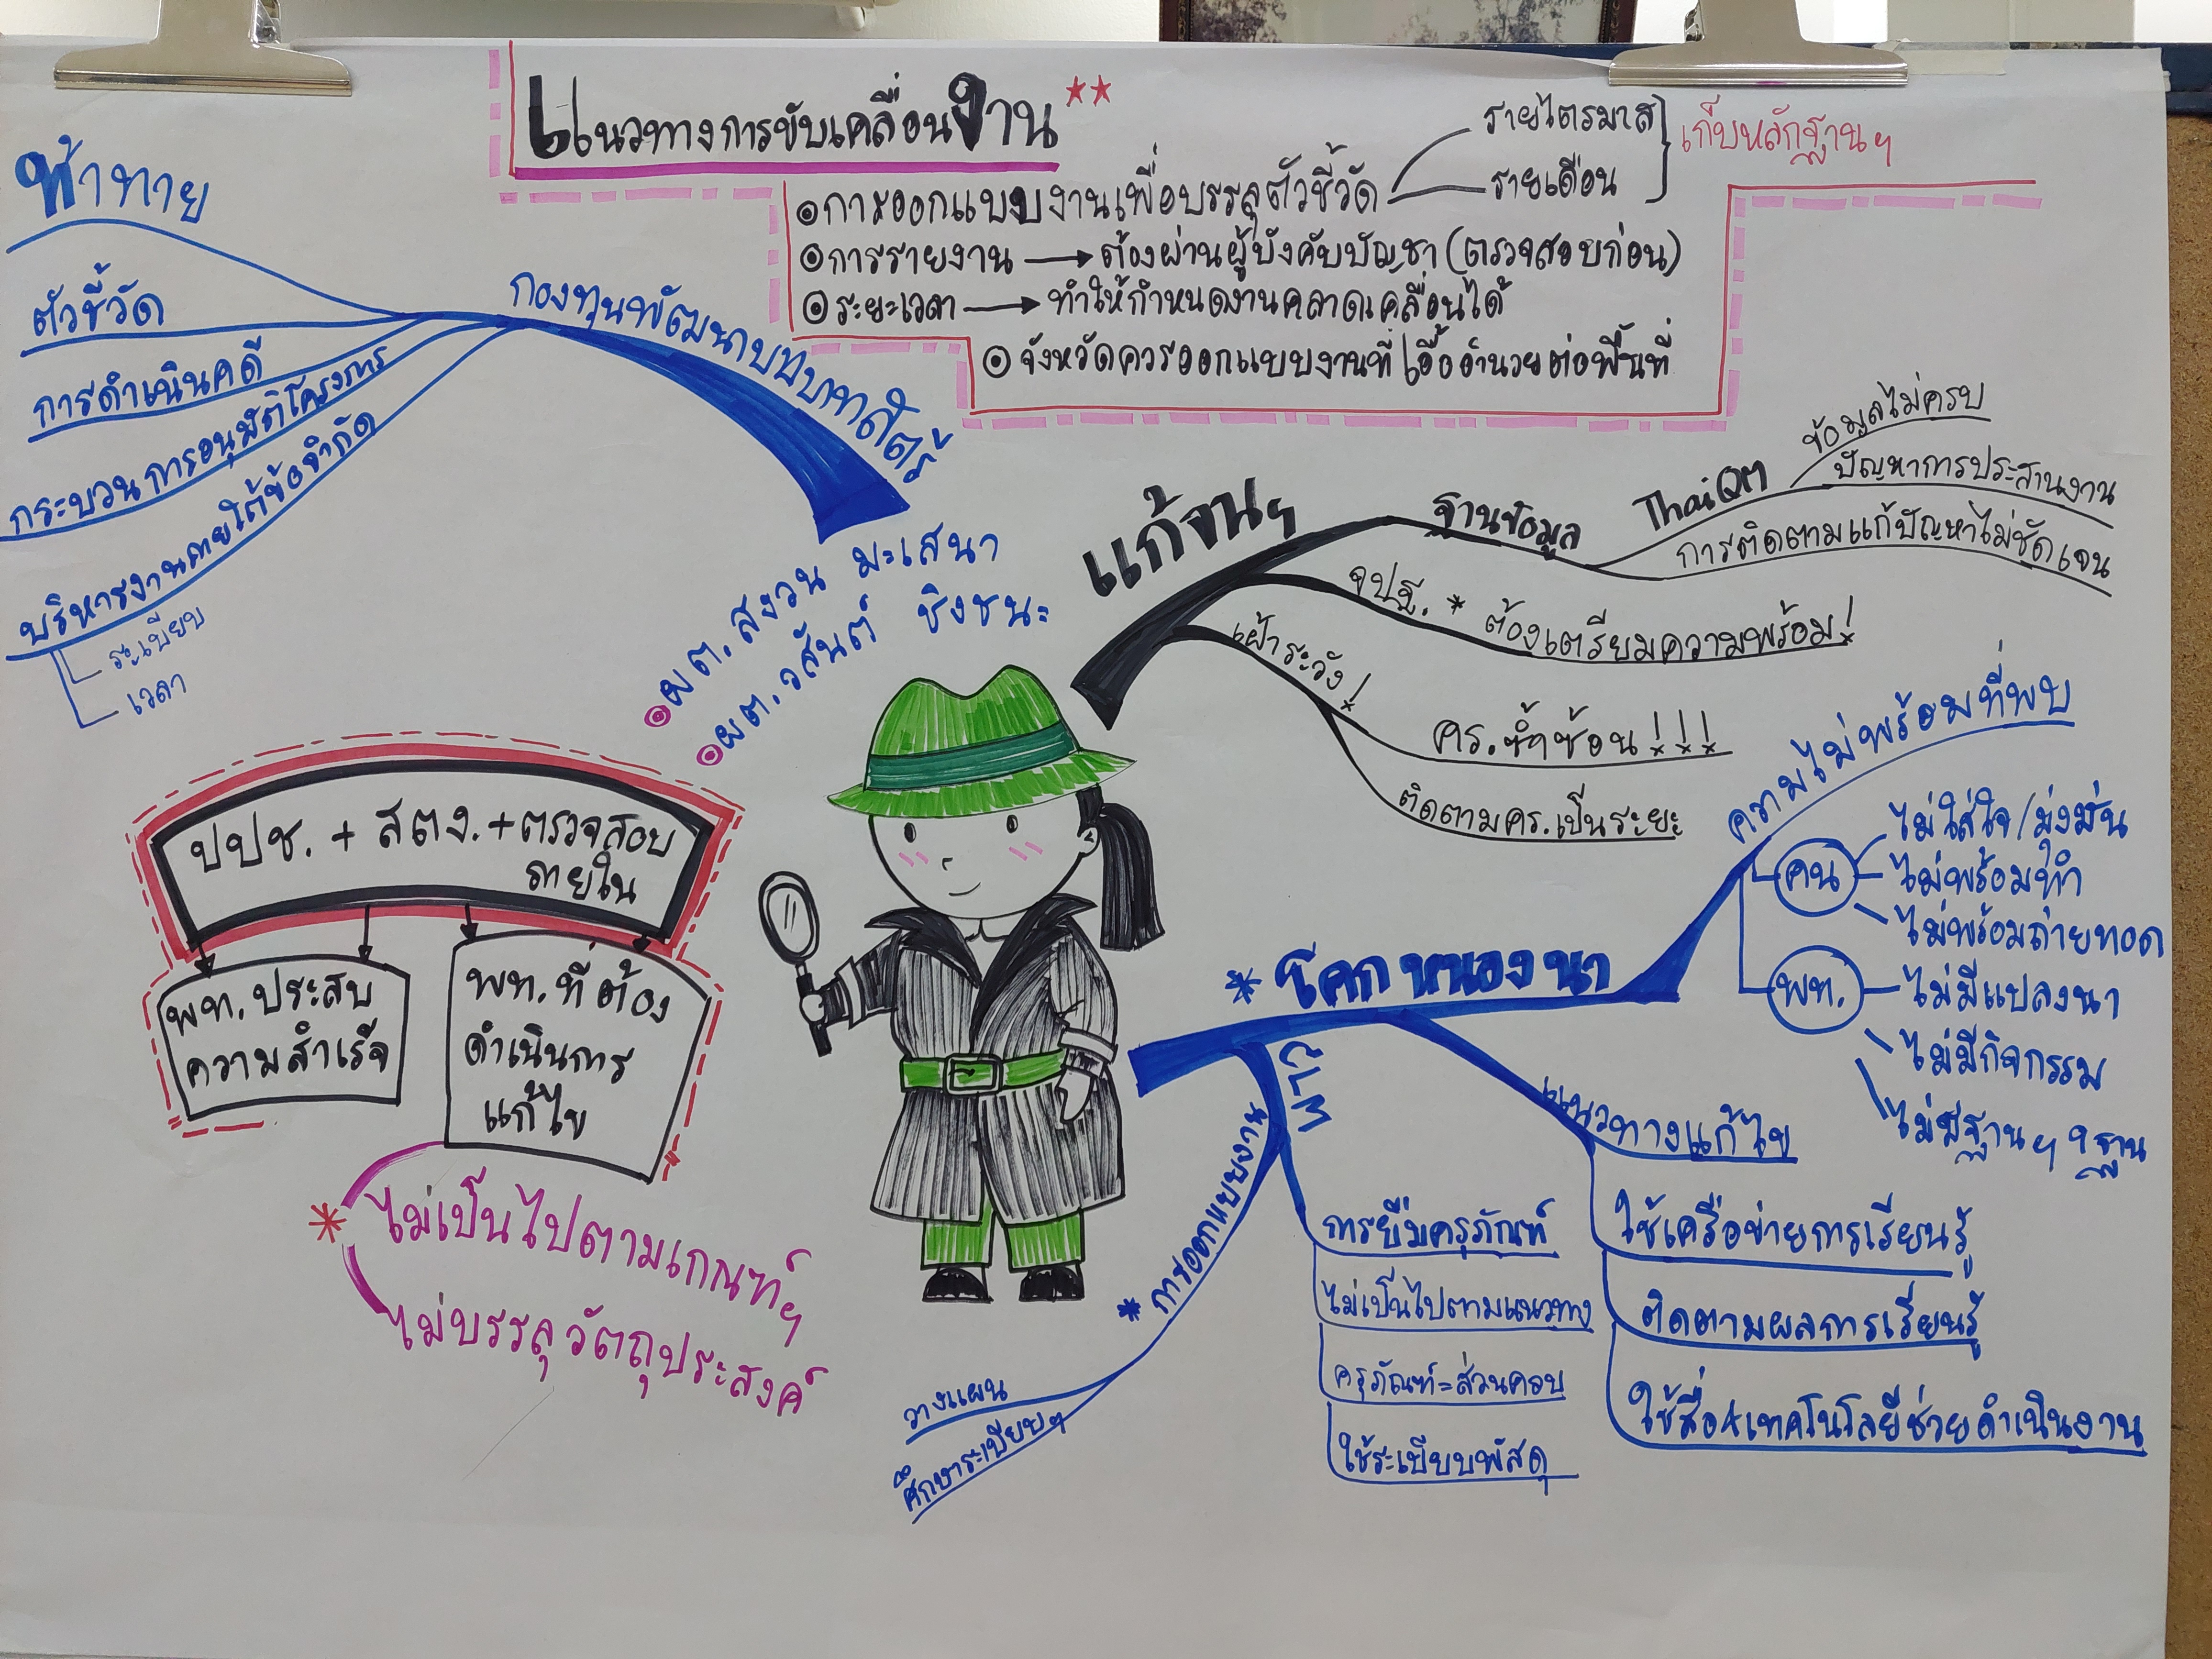 แนวทางการขับเคลื่อนงาน **
๏ การออกแบบงานเพื่อบรรลุตัวชี้วัด
รายไตรมาส
รายเดือน
เก็บหลักฐานฯ
๏ การรายงาน → ต้องผ่านผู้บังคับบัญชา (ตรวจสอบก่อน)
๏ ระยะเวลา → ทำให้กำหนดงานคลาดเคลื่อนได้
๏ จังหวัดควรออกแบบงานที่เอื้ออำนวยต่อพื้นที่
กองทุนพัฒนาบทบาทสตรี
ท้าทาย
ตัวชี้วัด
การดำเนินคดี
กระบวนการอนุมัติโครงการ
บริหารงานภายใต้ข้อจำกัด
ระเบียบ
เวลา
๏ ผต. สงวน มะเสนา
๏ ผต. วสันต์ ชิงชนะ
แก้จนฯ
ฐานข้อมูล
ThaiQM
ข้อมูลไม่ครบ
ปัญหาการประสานงาน
การติดตามแก้ปัญหาไม่ชัดเจน
จปฐ. * ต้องเตรียมความพร้อม!
เฝ้าระวัง!
คร. ซ้ำซ้อน!!!
ติดตามคร. เป็นระยะ
ปปช. + สตง. + ตรวจสอบ
ภายใน
พท. ประสบ
ความสำเร็จ
พท. ที่ต้อง
ดำเนินการ
แก้ไข
* ไม่เป็นไปตามเกณฑ์ฯ
ไม่บรรลุวัตถุประสงค์
* โคก หนอง นา
ความไม่พร้อมที่พบ
คน
ไม่ใส่ใจ/มุ่งมั่น
ไม่พร้อมทำ
ไม่พร้อมถ่ายทอด
พท.
ไม่มีแปลงนา
ไม่มีกิจกรรม
ไม่มีฐานฯ 9 ฐาน
แนวทางแก้ไข
ใช้เครือข่ายการเรียนรู้
ติดตามผลการเรียนรู้
ใช้สื่อ+เทคโนโลยีช่วยดำเนินงาน
การยืมครุภัณฑ์
ไม่เป็นไปตามแนวทาง
ครุภัณฑ์=ส่วนควบ
ใช้ระเบียบพัสดุ
* การออกแบบงาน
วางแผน
ศึกษาระเบียบฯ